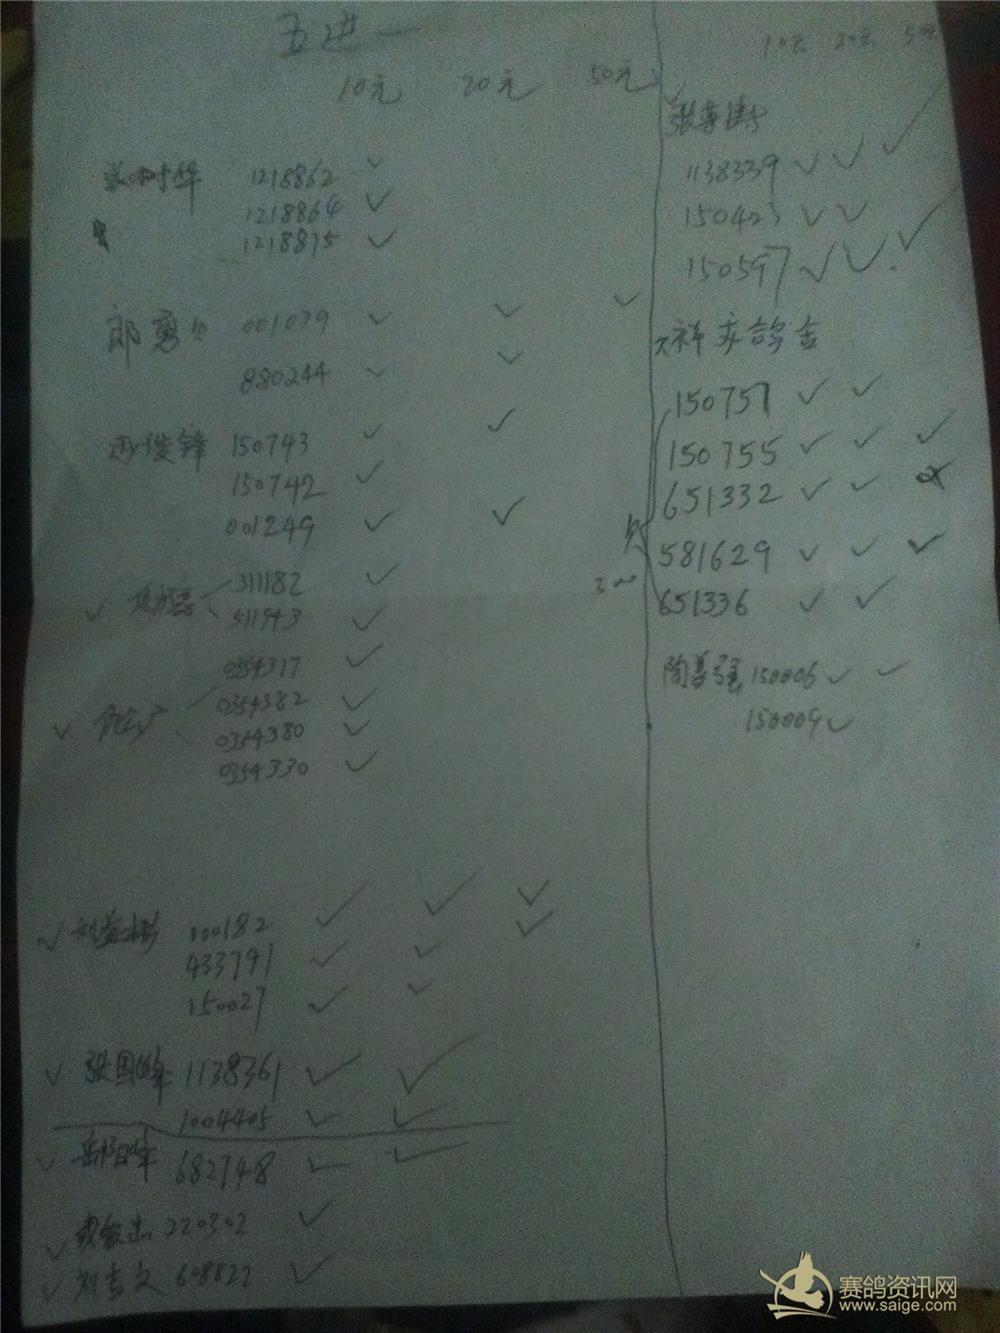 五进一
10元 20元 50元
1218862 ✓
1218864 ✓
1218875 ✓
郎勇 001079 ✓ ✓ ✓
880244 ✓ ✓
俊锋 150743 ✓ ✓
150742 ✓
001249 ✓ ✓
✓ 311182 ✓
511943 ✓
0354317 ✓
✓ 0354382 ✓
0354380 ✓
0354330 ✓
✓ 000182 ✓ ✓ ✓
433791 ✓ ✓ ✓
150027 ✓ ✓
✓ 张国峰 1138361 ✓ ✓
1004405 ✓ ✓
✓ 682748 ✓ ✓
✓ 220302 ✓
✓ 刘吉文 608822 ✓
10元 20元 50元
张
1138339 ✓ ✓ ✓
150423 ✓ ✓
150597 ✓ ✓ ✓
祥 鸽舍
150757 ✓ ✓
150755 ✓ ✓ ✓
651332 ✓ ✓
581629 ✓ ✓ ✓
651336 ✓ ✓
陶善强 150006 ✓ ✓
150009 ✓
赛鸽资讯网
www.saige.com